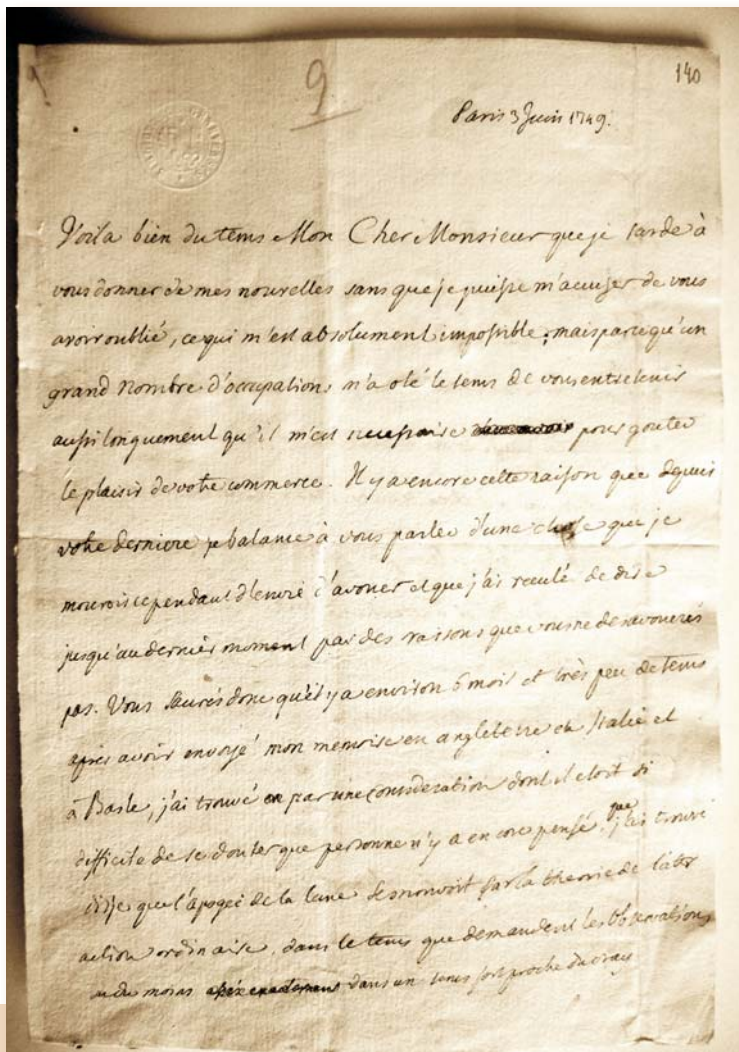 9
140
Paris 3 Juin 1749.
Voila bien du tems Mon Cher Monsieur que je tarde à
vous donner de mes nouvelles sans que je puisse m'accuser de vous
avoir oublié, ce qui m'est absolument impossible; mais parce qu'un
grand nombre d'occupations m'a oté le tems de vous entretenir
aussi longuement qu'il m'est necessaire pour gouter
le plaisir de votre commerce. Il y a encore cette raison que depuis
votre derniere je balance à vous parler d'une chose que je
mourois cependant d'envie d'avouer et que j'ai reculé de dire
jusqu'au dernier moment par des raisons que vous ne desavouerés
pas. Vous saurés donc qu'il y a environ 6 mois et très peu de tems
après avoir envoyé mon memoire en angleterre en Italie et
à Basle, j'ai trouvé par une consideration dont il etoit si
difficile de se douter que personne n'y a encore pensé, j'ai trouvé
disje que l'apogée de la lune se mouvoit par la theorie de l'attr
action ordinaire, dans le tems que demandent les observations
ou du moins dans un tems fort proche du vray